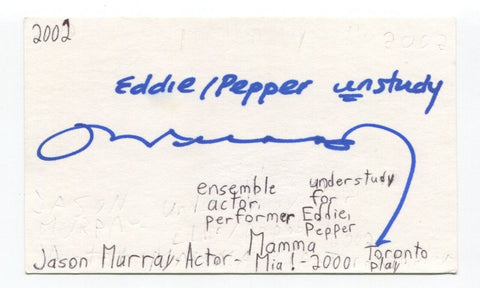 2002
Eddie/Pepper unstudy
ensemble actor, performer
understudy for Eddie, Pepper
Jason Murray-Actor- Mamma Mia!-2000 Toronto play